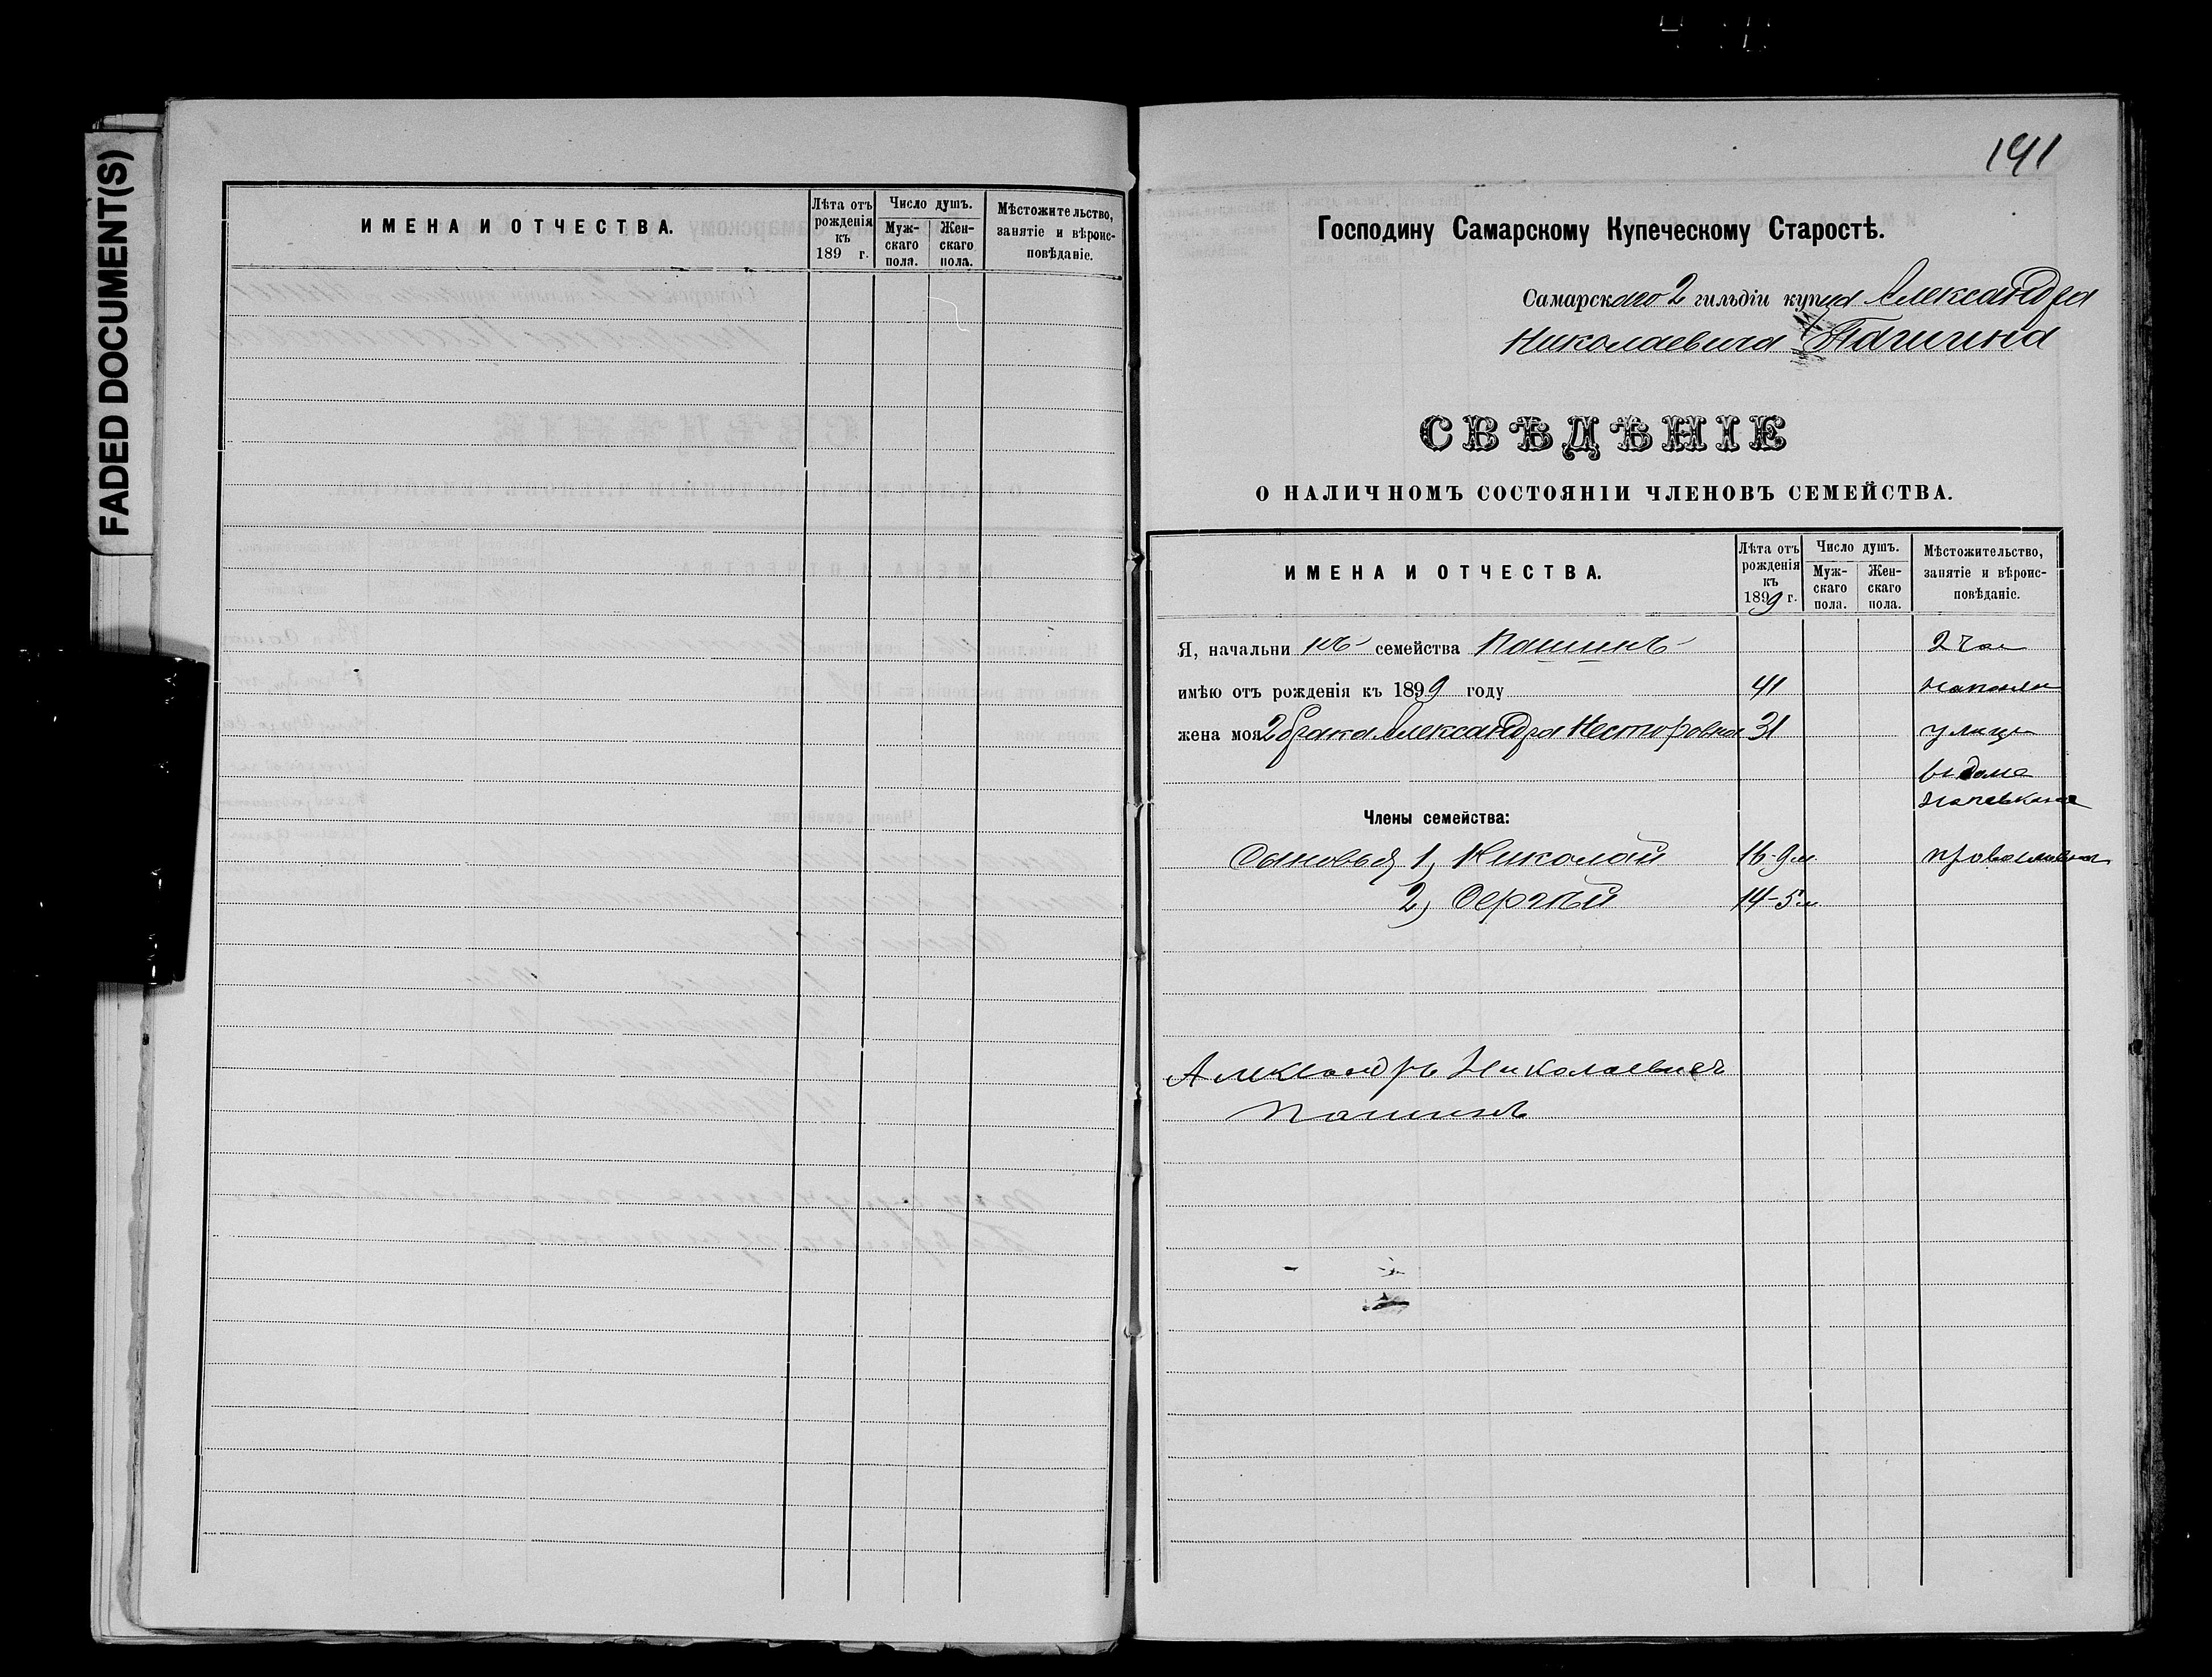 FADED DOCUMENT(S)
ИМЕНА И ОТЧЕСТВА.
Лѣта отъ рожденія къ 189 г.
Число душъ.
Мужскаго пола.
Женскаго пола.
Мѣстожительство, занятіе и вѣроисповѣданіе.
191
Господину Самарскому Купеческому Старостѣ.
Самарскаго 2 гильдіи купца Александра
Николаевича Пашина
СВѢДѢНІЕ
О НАЛИЧНОМЪ СОСТОЯНІИ ЧЛЕНОВЪ СЕМЕЙСТВА.
ИМЕНА И ОТЧЕСТВА.
Лѣта отъ рожденія къ 1899 г.
Число душъ.
Муж-
скаго
пола.
Жен-
скаго
пола.
Мѣстожительство,
занятіе и вѣроис-
повѣданіе.
Я, начальникъ семейства Пашинъ 2 час
имѣю отъ рожденія къ 1899 году 41
жена моя 2 брака Александра Несторовна 31 улице
въ доме
Члены семейства:
Сыновья 1, Николай 16-9 м православная
2, Сергѣй 14-5 м
Александръ Николаевичъ
Пашинъ